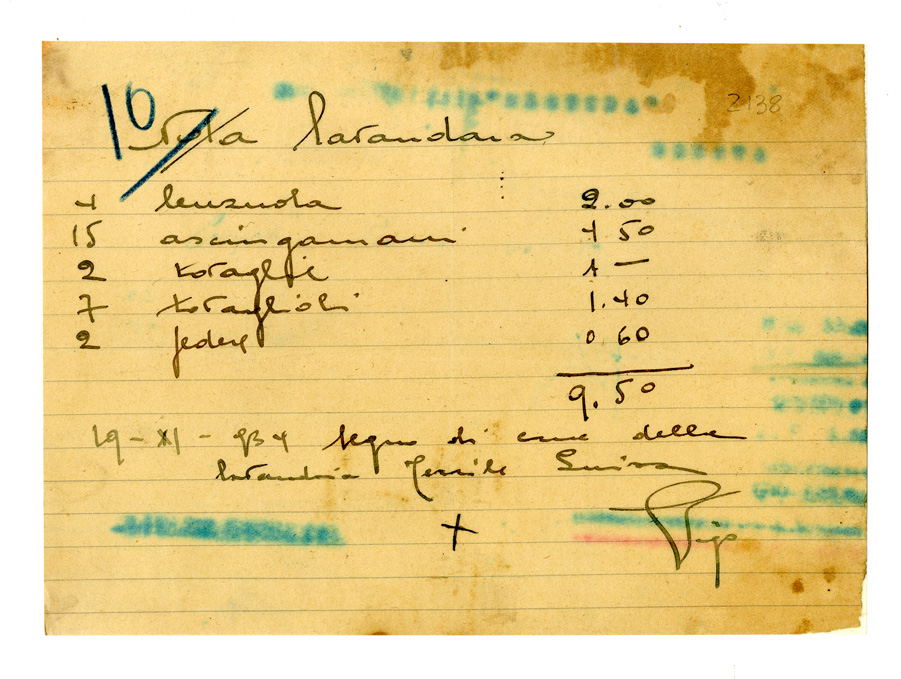 10
2138
Nota lavandaia
4 lenzuola 2.00
15 asciugamani 4 50
2 tovaglie 1 —
7 tovaglioli 1.40
2 federe 0.60
9.50
19 - XI - 934 segno di croce della
lavandaia Luisa
+